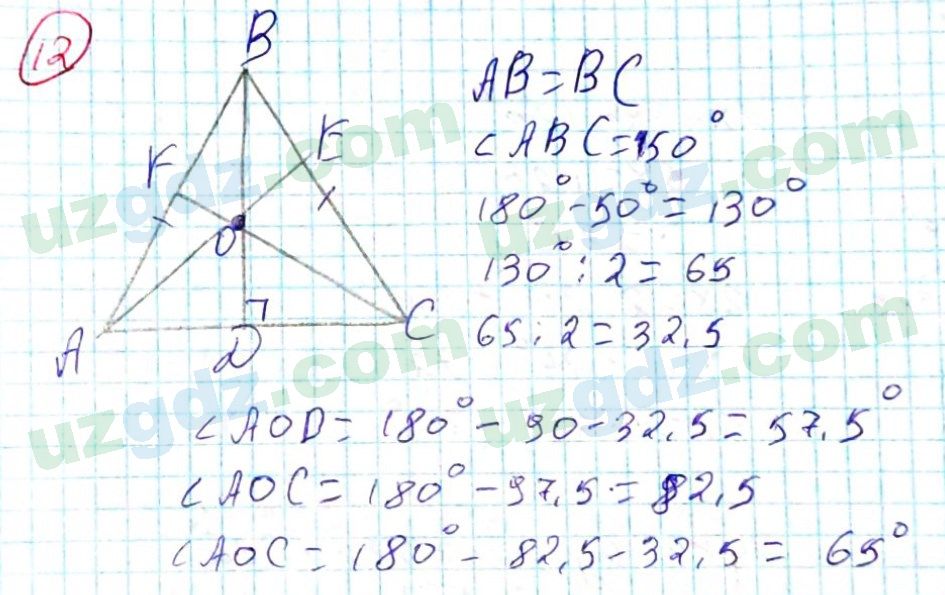 12
B
AB=BC
F
E
∠ABC=50°
180°-50°=130°
O
130°:2=65
A
D
C
65:2=32,5
∠AOD=180°-90-32,5=57,5°
∠AOC=180°-97,5=82,5
∠AOC=180°-82,5-32,5=65°
uzgdz.com
uzgdz.com
uzgdz.com
uzgdz.com
uzgdz.com
uzgdz.com